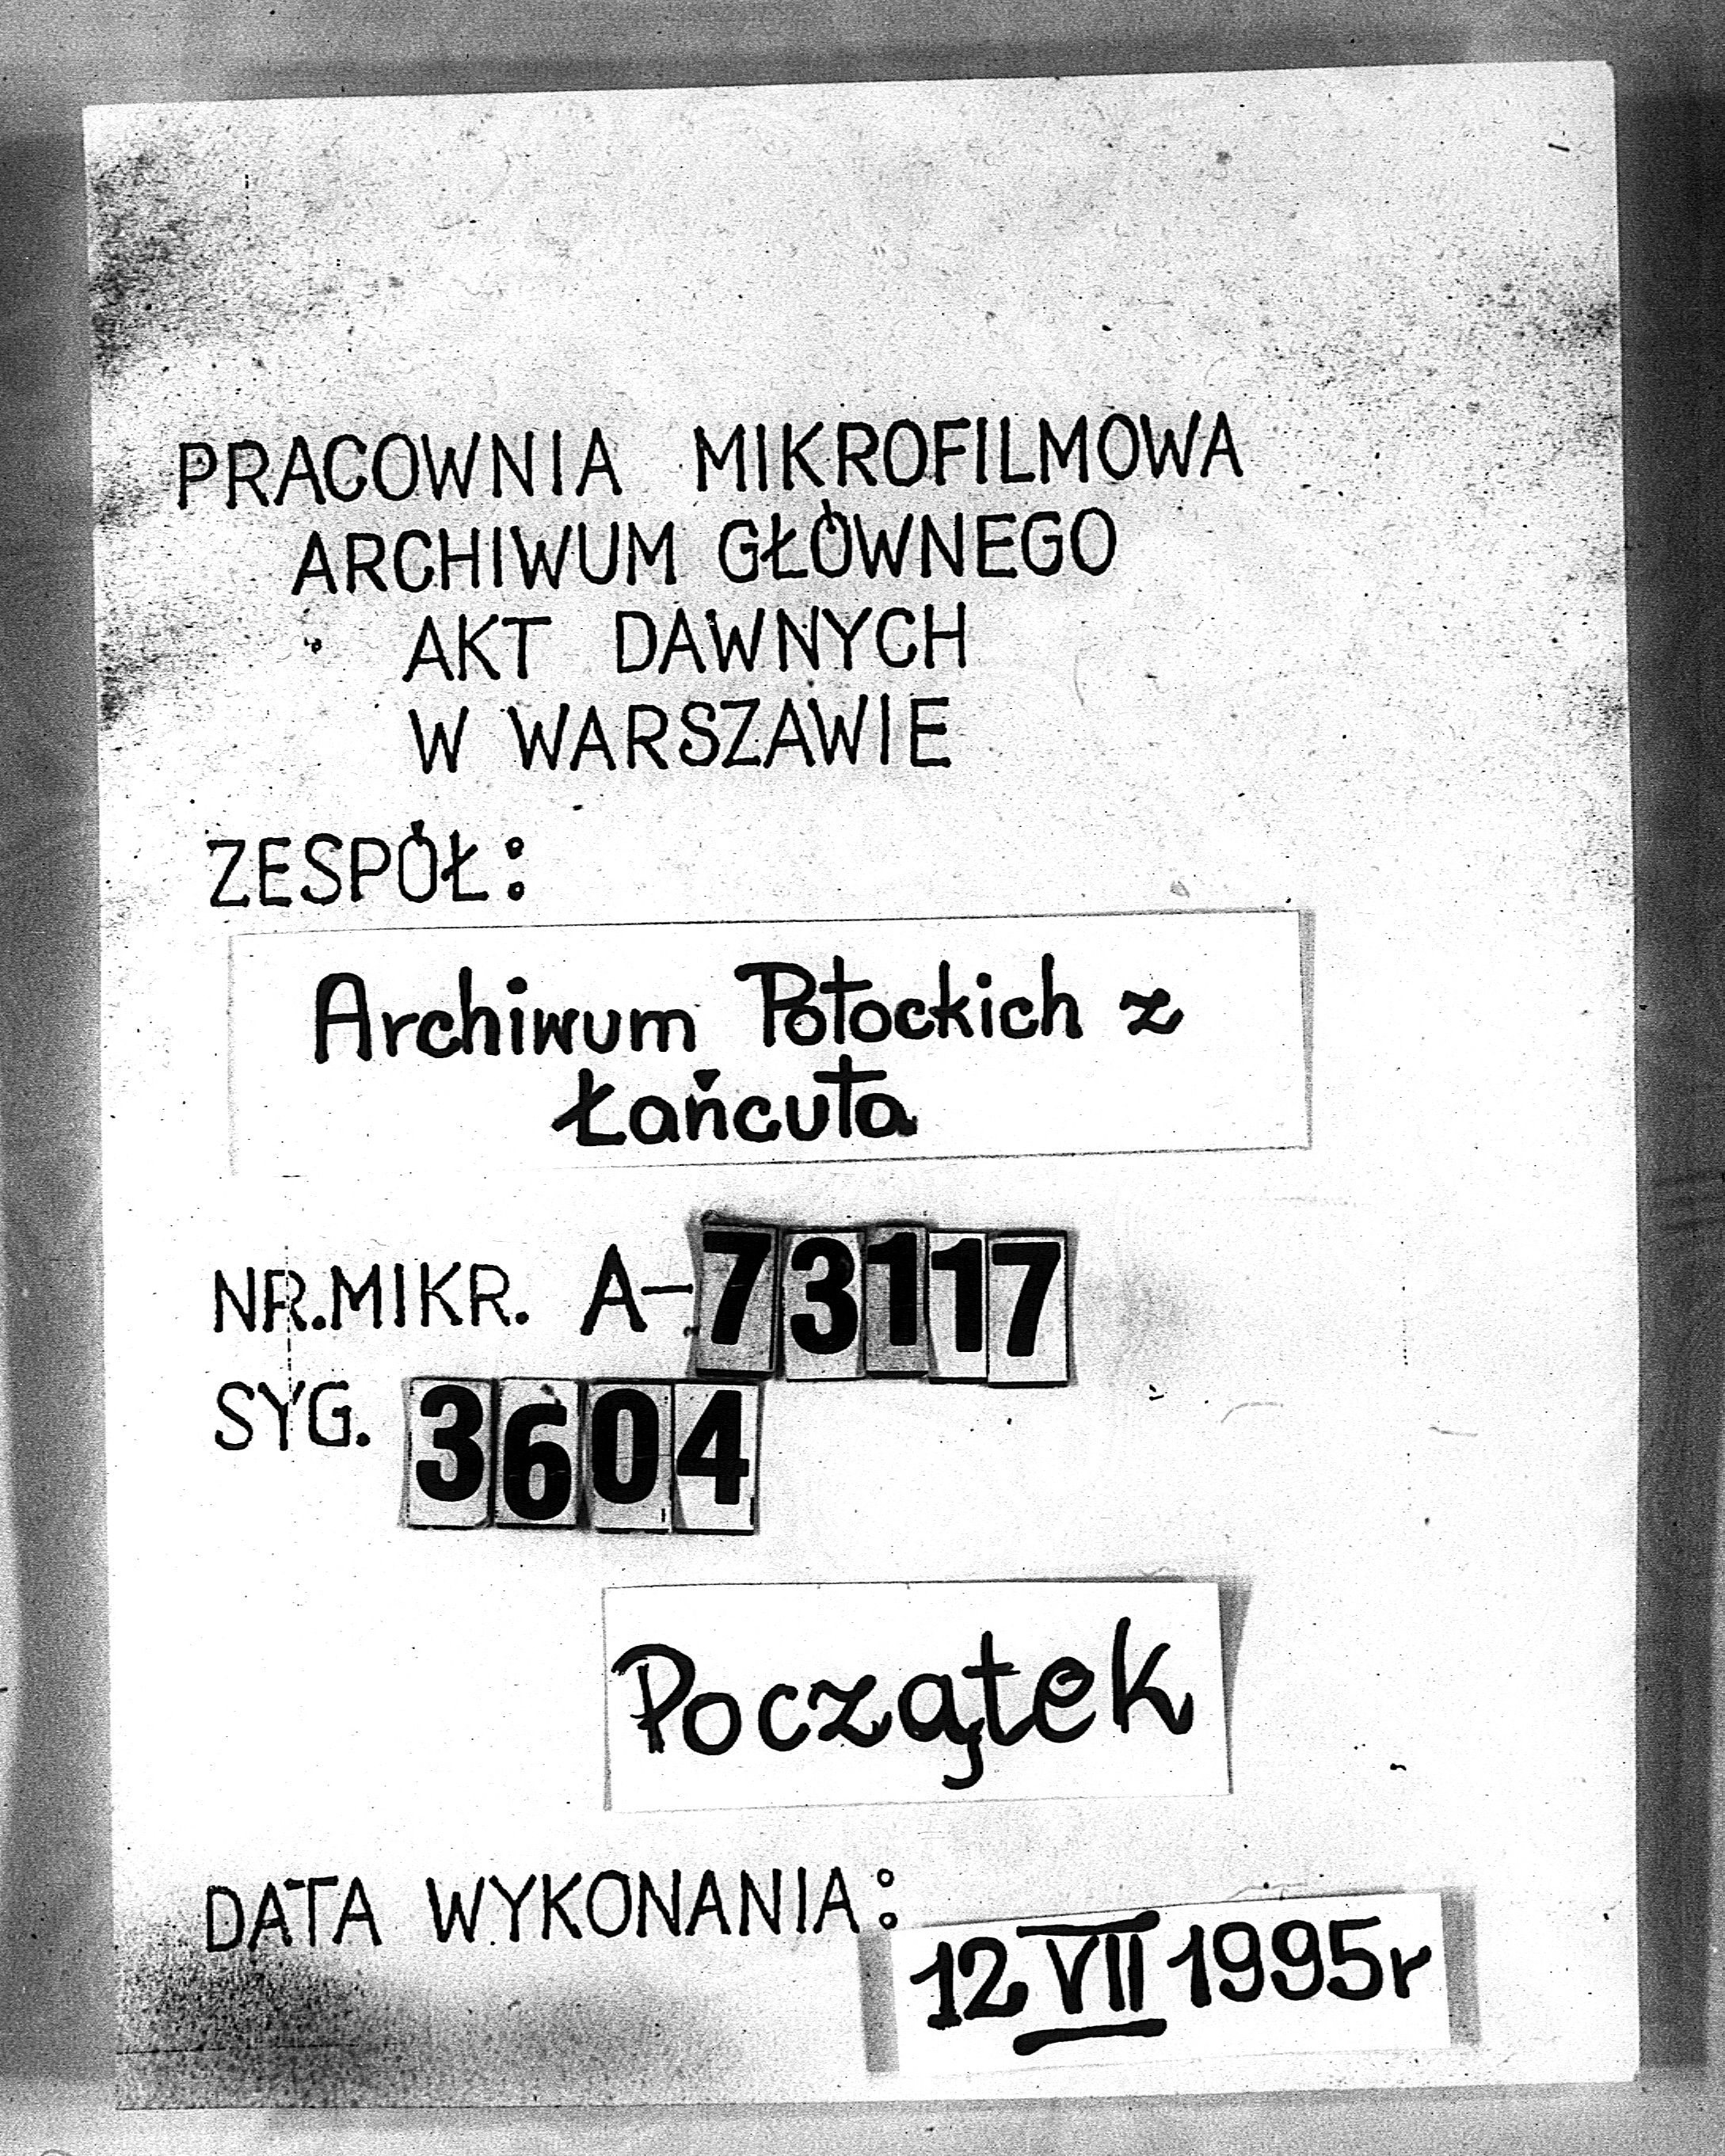 PRACOWNIA MIKROFILMOWA
ARCHIWUM GŁÓWNEGO
AKT DAWNYCH
W WARSZAWIE
ZESPÓŁ:
Archiwum Potockich z
Łańcuta
NR.MIKR. A-73117
SYG. 3604
Początek
DATA WYKONANIA:
12 VII 1995r